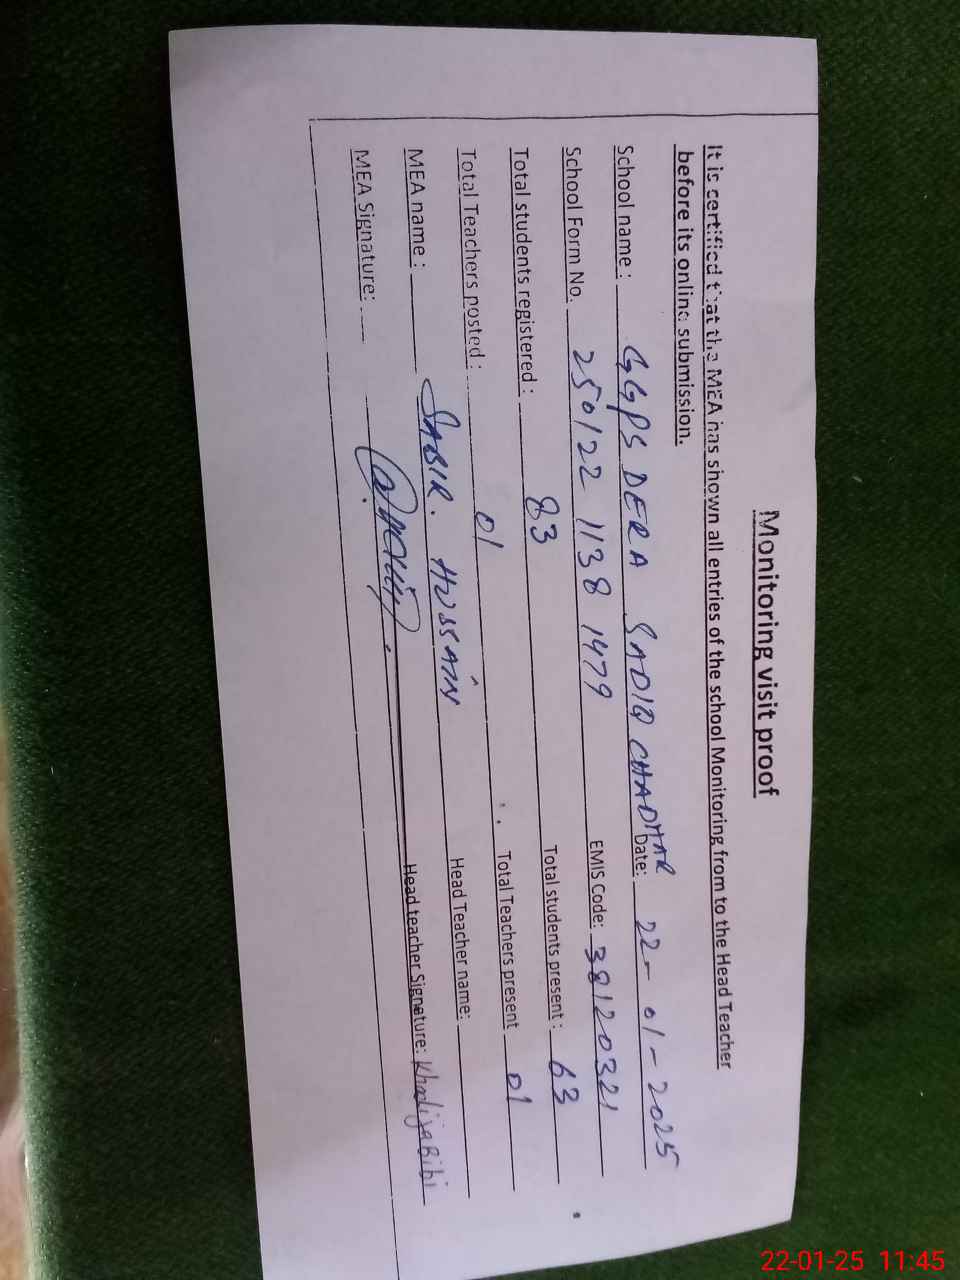 Monitoring visit proof
It is certified that the MEA has shown all entries of the school Monitoring from to the Head Teacher
before its online submission.
School name : GGPS DERA SADIQ CHADHAR Date: 22-01-2025
School Form No. 250122 1138 1479 EMIS Code: 38120321
Total students registered : 83 Total students present : 63
Total Teachers posted : 01 Total Teachers present 01
MEA name : SABIR. HUSSAIN Head Teacher name:
MEA Signature: Head teacher Signature: Khadija Bibi
22-01-25 11:45